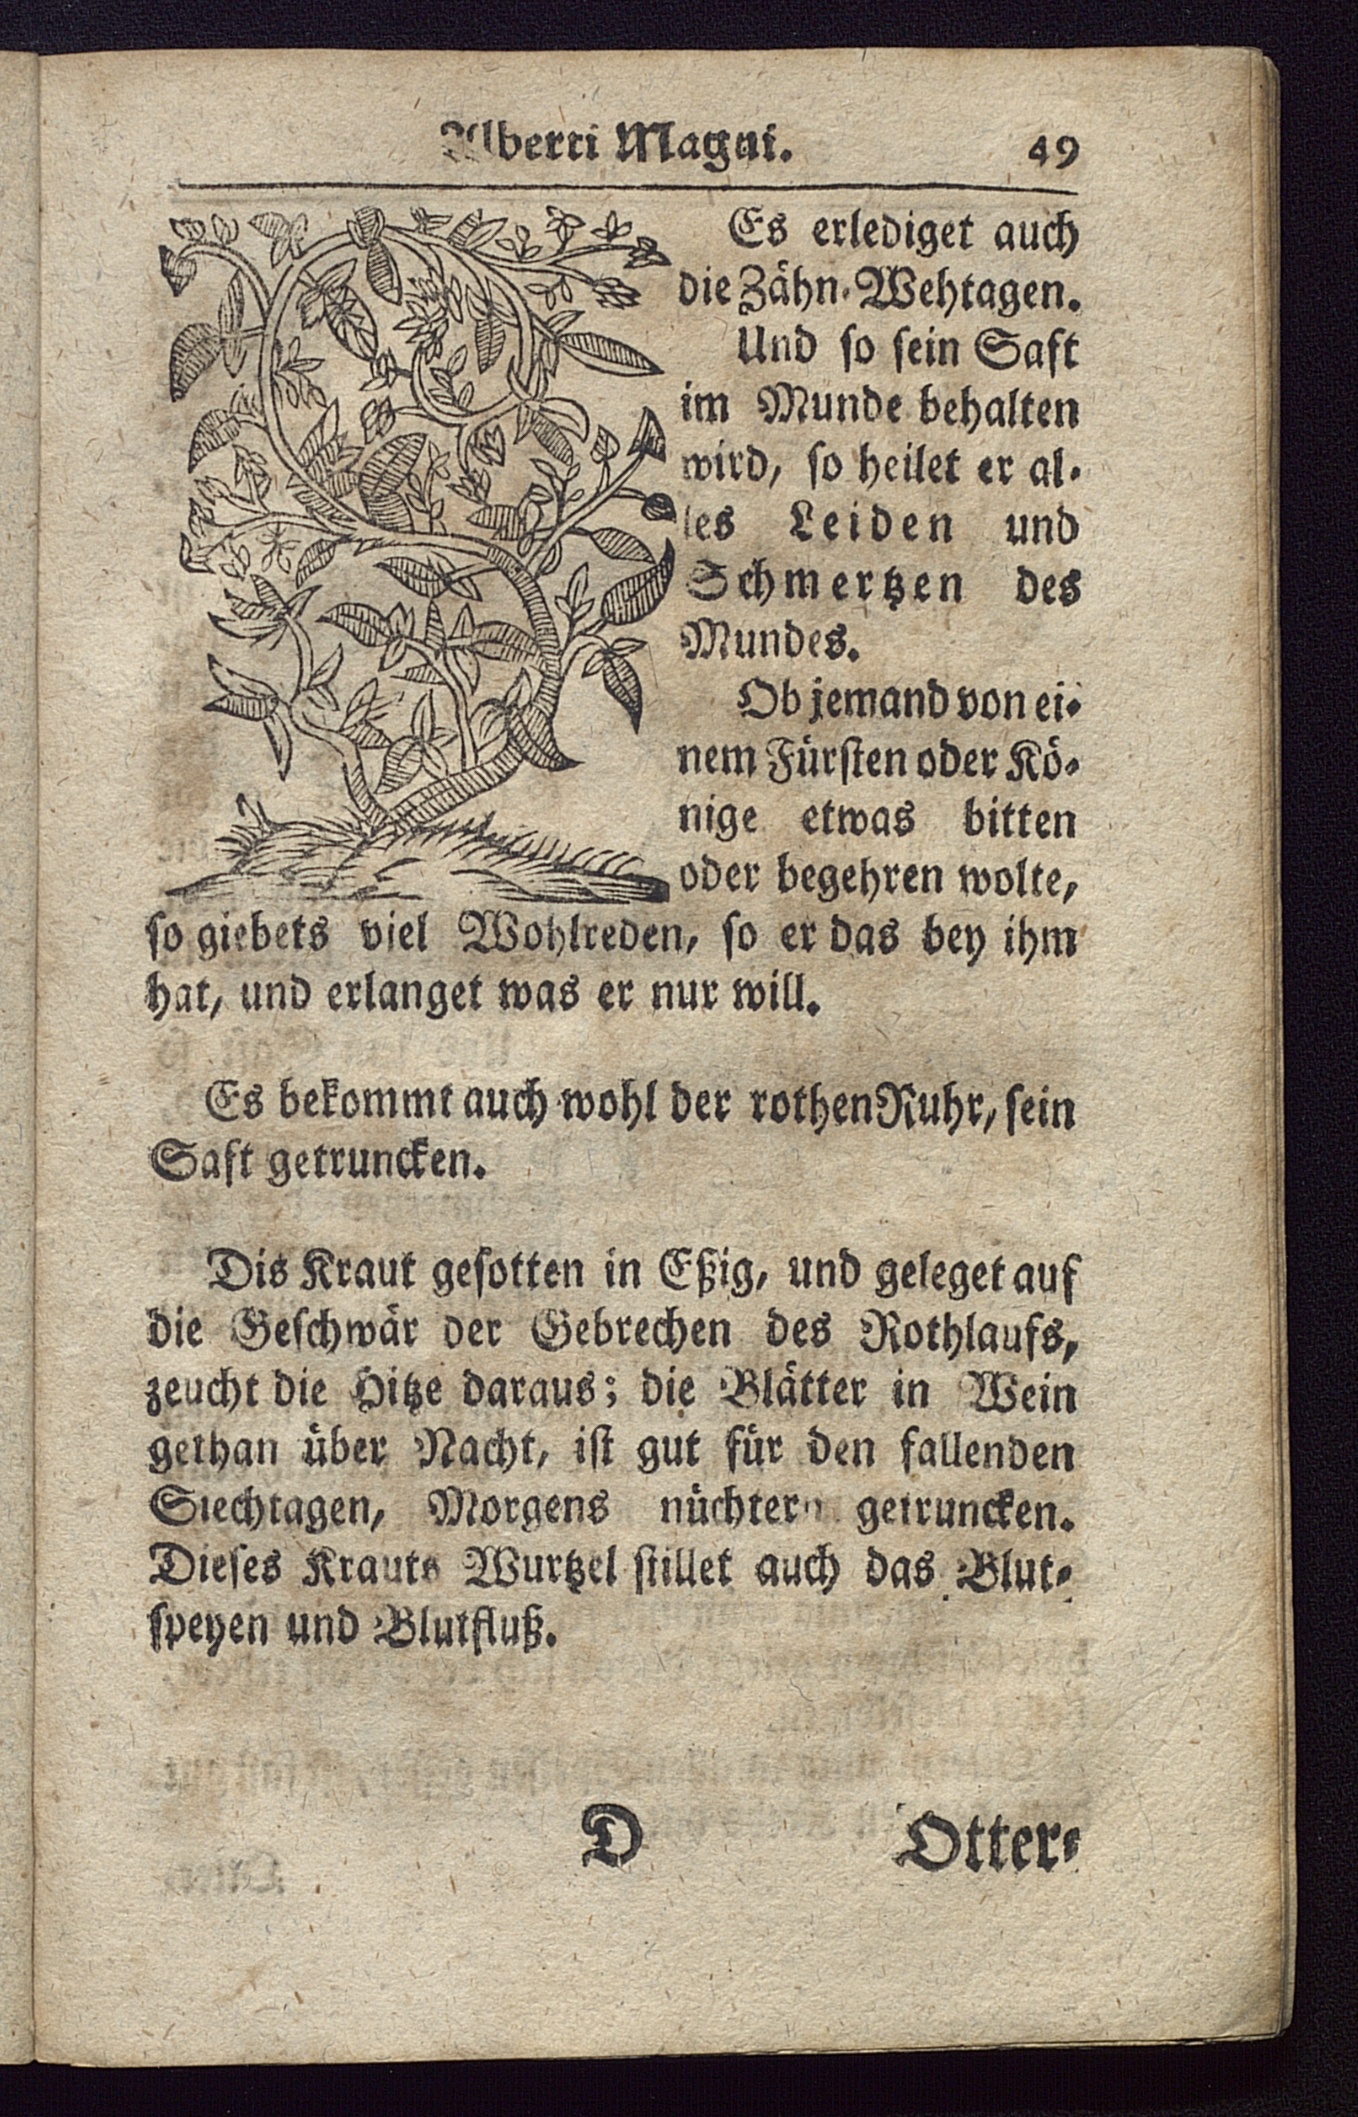 Alberti Magni. 49
Es erlediget auch
die Zähn-Wehtagen.
Und so sein Saft
im Munde behalten
wird, so heilet er al-
les Leiden und
Schmertzen des
Mundes.
Ob jemand von ei-
nem Fürsten oder Kö-
nige etwas bitten
oder begehren wolte,
so giebets viel Wohlreden, so er das bey ihm
hat, und erlanget was er nur will.
Es bekommt auch wohl der rothen Ruhr, sein
Saft getruncken.
Dis Kraut gesotten in Eßig, und geleget auf
die Geschwär der Gebrechen des Rothlaufs,
zeucht die Hitze daraus; die Blätter in Wein
gethan über Nacht, ist gut für den fallenden
Siechtagen, Morgens nüchtern getruncken.
Dieses Krauts Wurtzel stillet auch das Blut-
speyen und Blutfluß.
D Otter-